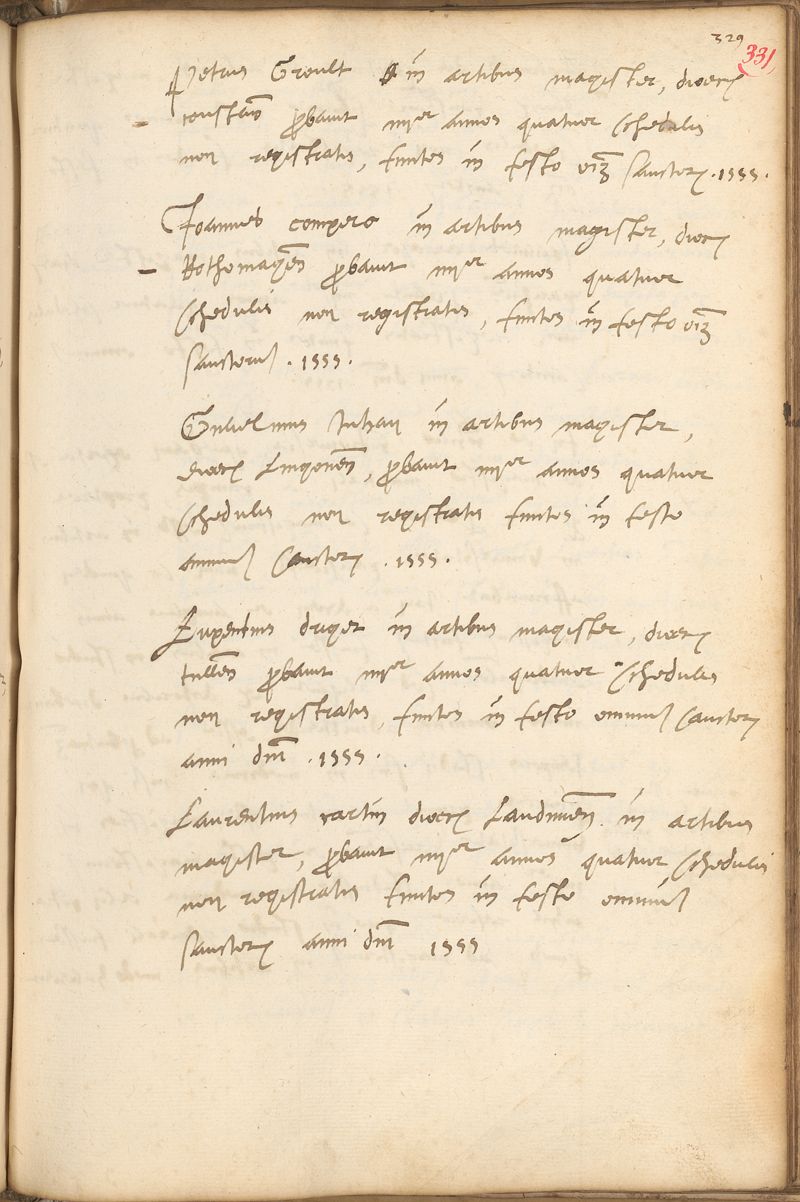 329
331
Petrus Groult in artibus magister, dioces
constan probavit iiijor annos quatuor schedulis
non registratis, finitos in festo oim sanctor. 1555.
Joannes compero in artibus magister, dioces
Rothomagen probavit iiijor annos quatuor
schedulis non registratis, finitos in festo oim
sanctorum. 1555.
Gulielmus Juhan in artibus magister,
dioces Lingonen, probavit iiijor annos quatuor
schedulis non registratis finitos in festo
omnium sanctor. 1555.
Lupentius driget in artibus magister, dioces
tullen probavit iiijor annos quatuor schedulis
non registratis, finitos in festo omnium sanctor
anni dni. 1555.
Laurentius cartin dioces Laudunen. in artibus
magister, probavit iiijor annos quatuor schedulis
non registratis finitos in festo omnium
sanctor anni dni 1555